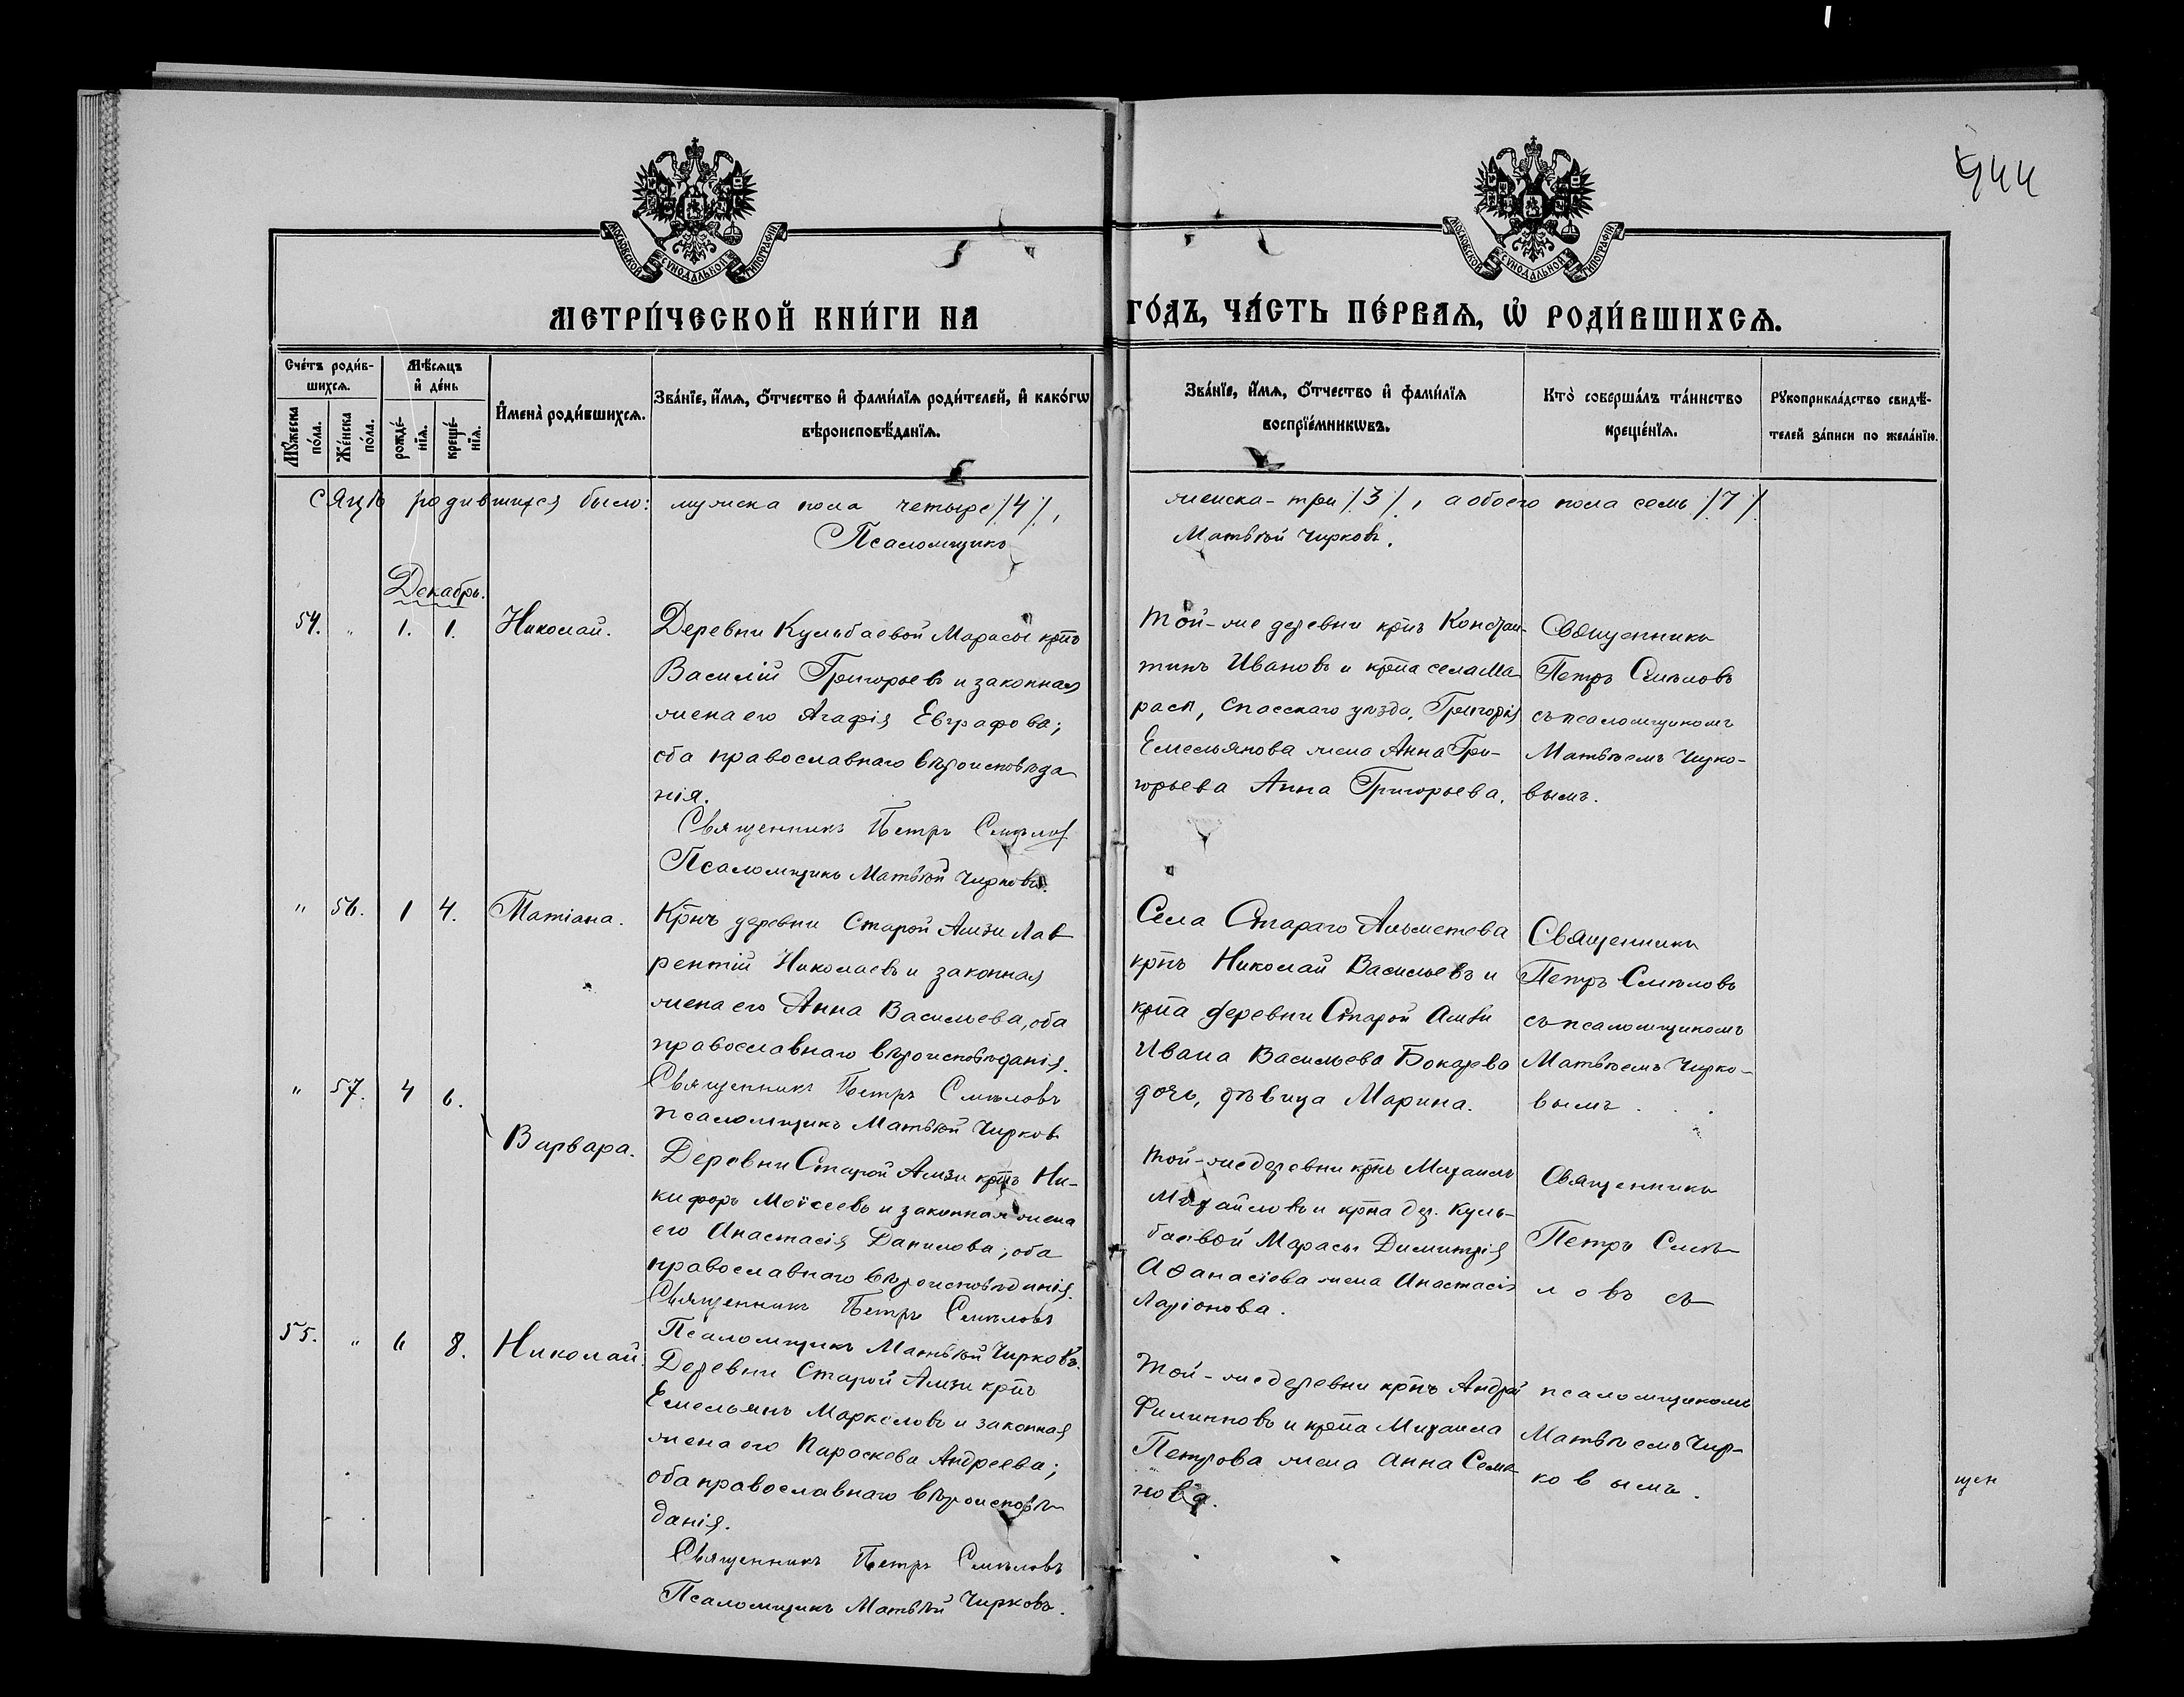 944
МОСКОВСКОЙ СУНОДАЛЬНОЙ ТИПОГРАФІИ
МОСКОВСКОЙ СУНОДАЛЬНОЙ ТИПОГРАФІИ
МЕТРИ́ЧЕСКОЙ КНИ́ГИ НА ГО́ДЪ, ЧА́СТЬ ПЕ́РВАѦ, Ѡ҆ РОДИ́ВШИХСѦ.
Сче́тъ роди́в-
шихсѧ.
Мꙋ́жеска по́ла.
Же́нска по́ла.
Мѣ́сѧцъ
и҆ де́нь
рожде́-
нїѧ.
креще́-
нїѧ.
И҆мена̀ роди́вшихсѧ.
Зва́нїе, и҆́мѧ, ѻ҆́тчество и҆ фами́лїѧ роди́телей, и҆ како́гѡ
вѣроисповѣ́данїѧ.
Зва́нїе, и҆́мѧ, ѻ҆́тчество и҆ фами́лїѧ
воспрїе́мникѡвъ.
Кто̀ соверша́лъ та́инство
креще́нїѧ.
Рꙋкоприкла́дство свидѣ́-
телей за́писи по жела́нїю.
сяцѣ родившихся было: мужска пола четыре /4/, женска - три /3/, а обоего пола семь /7/
Псаломщикъ Матвѣй Чирковъ.
Декабрь.
54. " 1. 1. Николай.
Деревни Кульбаевой Марасы крн̃ъ
Василій Григорьевъ и законная
жена его Агафія Евграфова;
оба православнаго вѣроисповѣда
нія.
Священникъ Петръ Смѣловъ
Псаломщикъ Матвѣй Чирковъ.
Той-же деревни крн̃ъ Констан-
тинъ Ивановъ и крн̃а села Ма
расы, Спасскаго уѣзда, Григорія
Емельянова жена Анна Гри-
горьева Анна Григорьева.
Священникъ
Петръ Смѣловъ
съ псаломщикомъ
Матвѣемъ Чирко-
вымъ.
" 56. 1 4. Татіана.
Крн̃ъ деревни Старой Амзи Лав
рентій Николаевъ и законная
жена его Анна Васильева, оба
православнаго вѣроисповѣданія.
Священникъ Петръ Смѣловъ
псаломщикъ Матвѣй Чирковъ
Села Стараго Альметева
крн̃ъ Николай Васильевъ и
крн̃а деревни Старой Амзи
Ивана Васильева Бокарева
дочь, дѣвица Марина.
Священникъ
Петръ Смѣловъ
съ псаломщикомъ
Матвѣемъ Чирко-
вымъ.
" 57. 4 6. Варвара.
Деревни Старой Амзи крн̃ъ Ни-
кифоръ Моѵсеевъ и законная жена
его Анастасія Данилова; оба
православнаго вѣроисповѣданія.
Священникъ Петръ Смѣловъ
Псаломщикъ Матвѣй Чирковъ.
Той-же деревни крн̃ъ Михаилъ
Михайловъ и крн̃а дер. Куль-
баевой Марасы Димитрія
Аѳанасіева жена Анастасія
Ларіонова.
Священникъ
Петръ Смѣ-
ловъ съ
55. " 6 8. Николай.
Деревни Старой Амзи крн̃ъ
Емельянъ Маркеловъ и законная
жена его Параскева Андреева;
оба православнаго вѣроисповѣ-
данія.
Священникъ Петръ Смѣловъ
Псаломщикъ Матвѣй Чирковъ.
Той-же деревни крн̃ъ Андрей
Филипповъ и крн̃а Михаила
Петрова жена Анна Семе
нова.
псаломщикомъ
Матвѣемъ Чир-
ковымъ.
щен